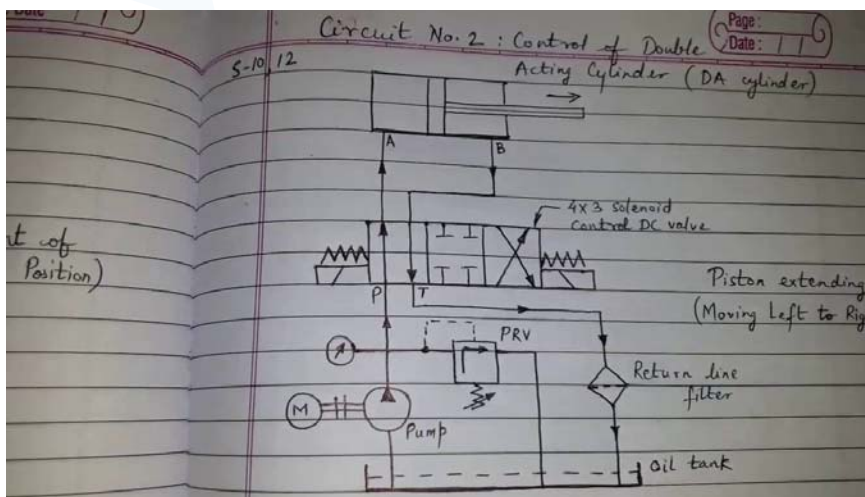 Page:
Date: / /
Circuit No. 2 : Control of Double
Acting Cylinder (DA cylinder)
S-10, 12
A
B
4x3 solenoid
control DC valve
rt of
Position)
P
T
Piston extending
(Moving Left to Rig
PRV
Return line
filter
M
Pump
Oil tank